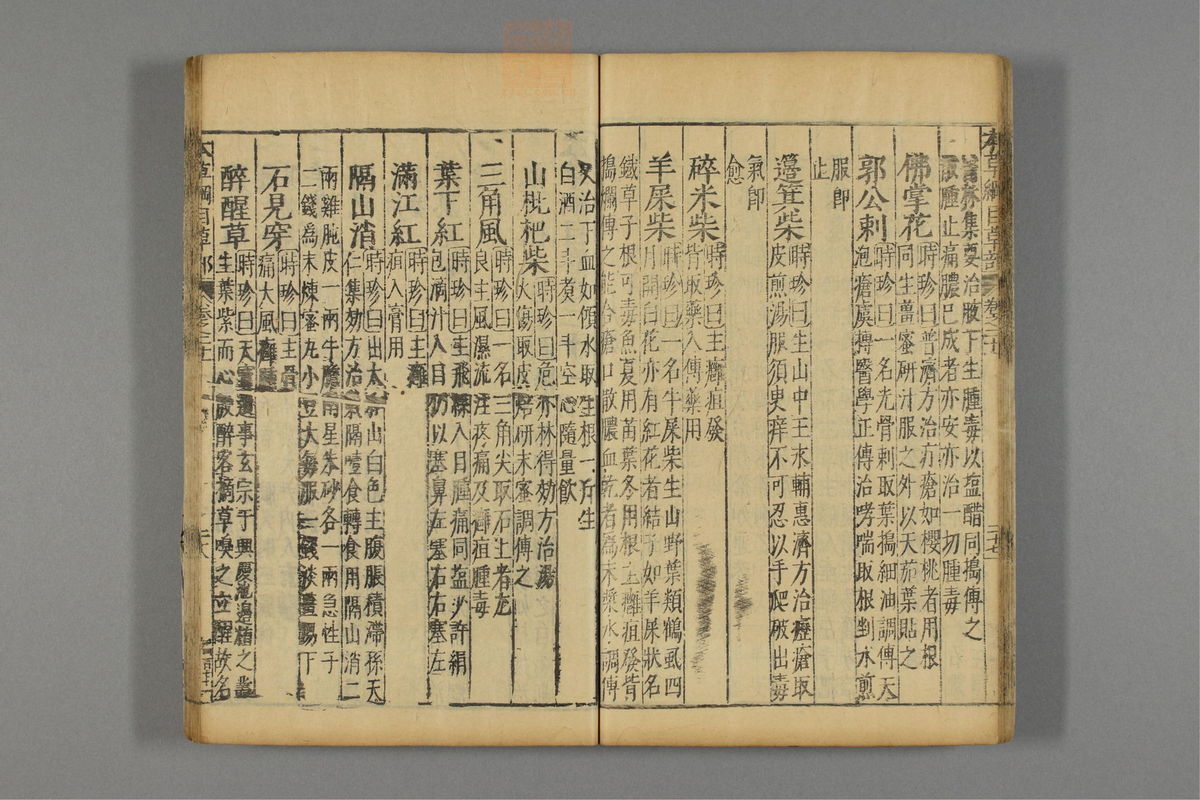 本草綱目草部
集要治腋下生腫毒以塩醋同搗傅之
散腫止痛膿已成者亦安亦治一切腫毒
佛掌花
時珍曰普濟方治疔瘡如櫻桃者用根
同生薑蜜研汁服之外以天茄葉貼之
郭公刺
時珍曰一名光骨刺取葉搗細油調傅天
泡瘡虞摶醫學正傳治哮喘取根剉水煎
服即
止
籩箕柴
時珍曰生山中王永輔惠濟方治癧瘡取
皮煎湯服須臾痒不可忍以手爬破出毒
氣即
愈
碎米柴
時珍曰主癰疽發
背取藥入傅藥用
羊屎柴
時珍曰一名牛屎柴生山野葉類鶴虱四
月開白花亦有紅花者結子如羊屎狀名
鐵草子根可毒魚夏用苗葉冬用根主癰疽發背
搗爛傅之能合瘡口散膿血乾者為末漿水調傅
又治下血如傾水取生根一斤生
白酒二斗煮一斗空心隨量飲
山枇杷柴
時珍曰危亦林得効方治湯
火傷取皮焙研末蜜調傅之
三角風
時珍曰一名三角尖取石上者尤
良主風濕流注疼痛及癰疽腫毒
葉下紅
時珍曰主飛絲入目腫痛同塩少許絹
包滴汁入目仍以塞鼻左塞右右塞左
滿江紅
時珍曰主癰
疽入膏用
隔山消
時珍曰出太和山白色主腹脹積滯孫天
仁集効方治氣隔噎食轉食用隔山消二
兩雞肫皮一兩牛膽南星朱砂各一兩急性子
二錢為末煉蜜丸小豆大每服一錢淡薑湯下
石見穿
時珍曰主骨
痛大風癰腫
醉醒草
時珍曰天寶遺事玄宗于興慶池邊植之叢
生葉紫而心殷醉客摘草嗅之立醒故名
本草綱目草部